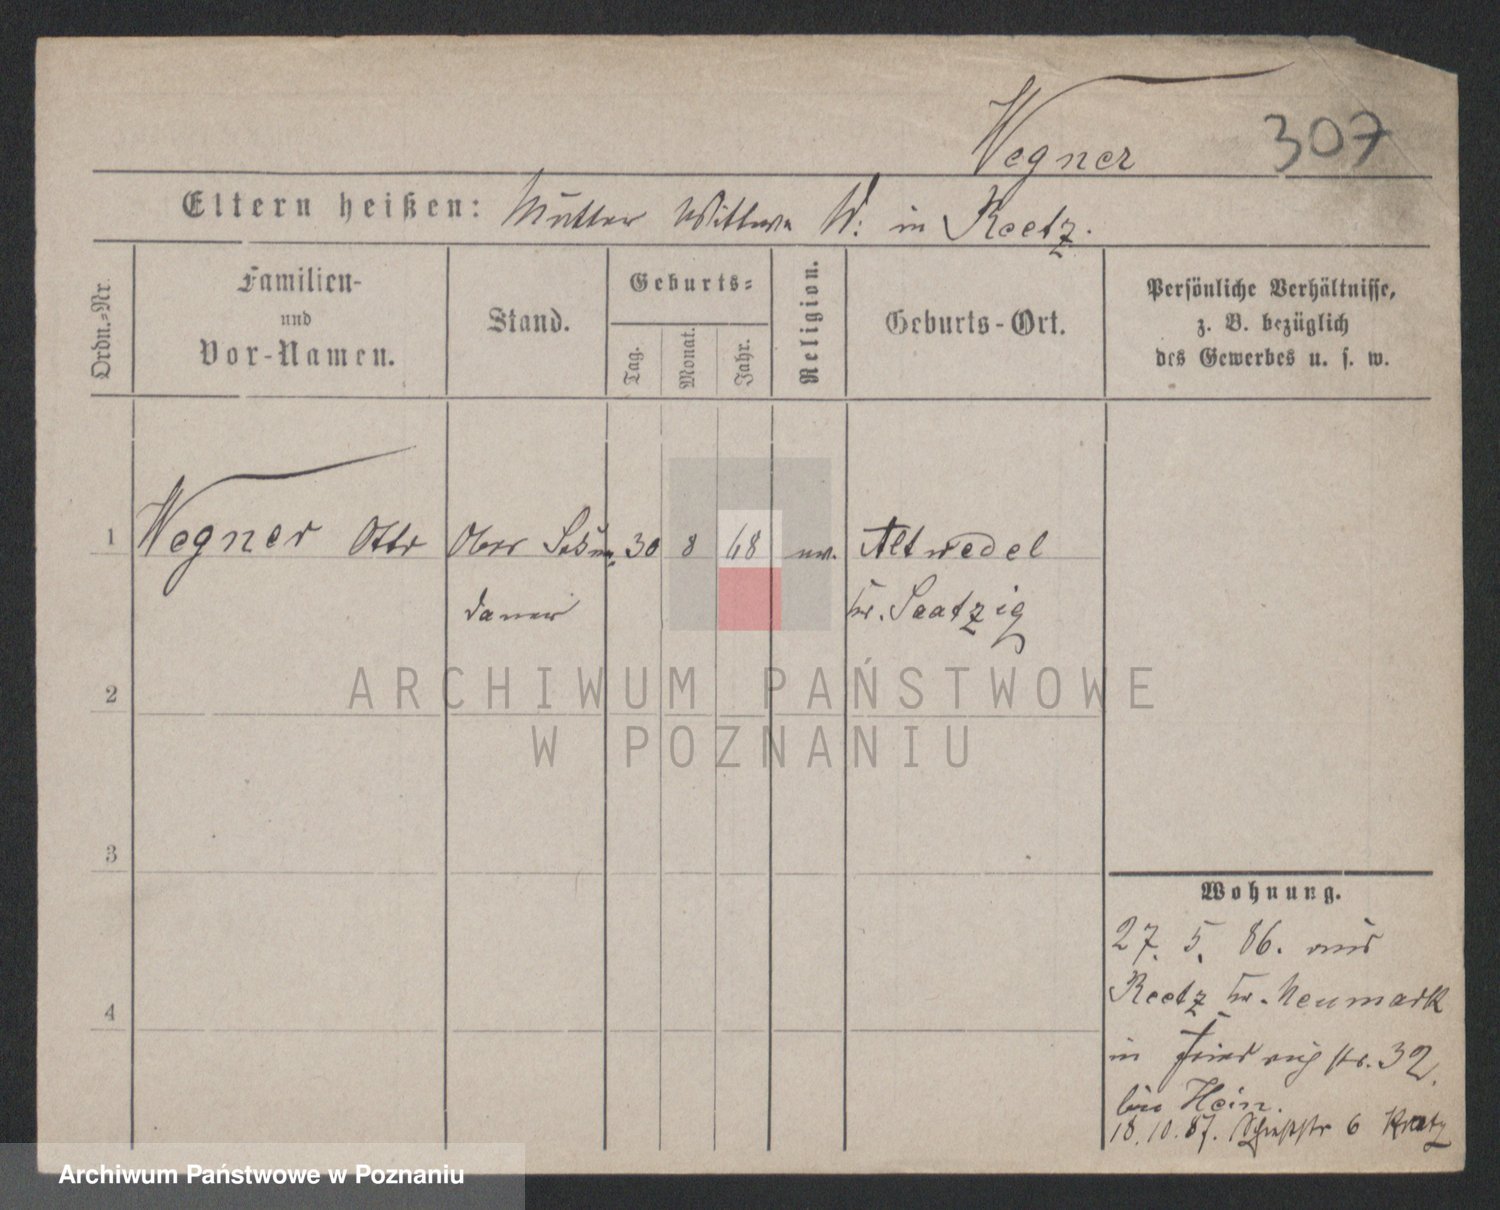 Wegner
307
Eltern heißen: Mutter Wittwe W: in Reetz.
Ordn.-Nr.
Familien-
und
Vor-Namen.
Stand.
Geburts-
Tag.
Monat.
Jahr.
Religion.
Geburts-Ort.
Persönliche Verhältnisse,
z. B. bezüglich
des Gewerbes u. s. w.
1 Wegner Otto Ober 30 8 68 ev. Altwedel
Kr. Saatzig
2
3
4
Wohnung.
27. 5. 86. aus
Reetz Kr. Neumark
in Friedrichstr. 32.
bei Hein.
18. 10. 87. Schießstr 6
ARCHIWUM PAŃSTWOWE
W POZNANIU
Archiwum Państwowe w Poznaniu